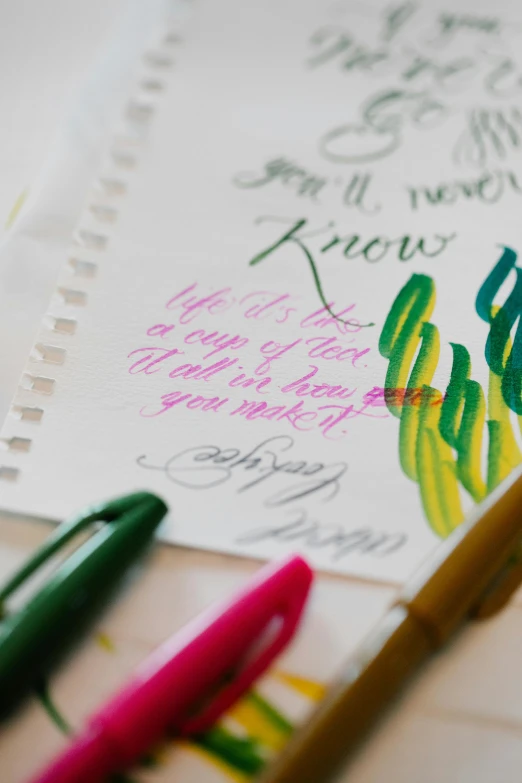 If you
Never
Go
you'll never
Know
Life it's like
a cup of tea.
It all in how
you make it